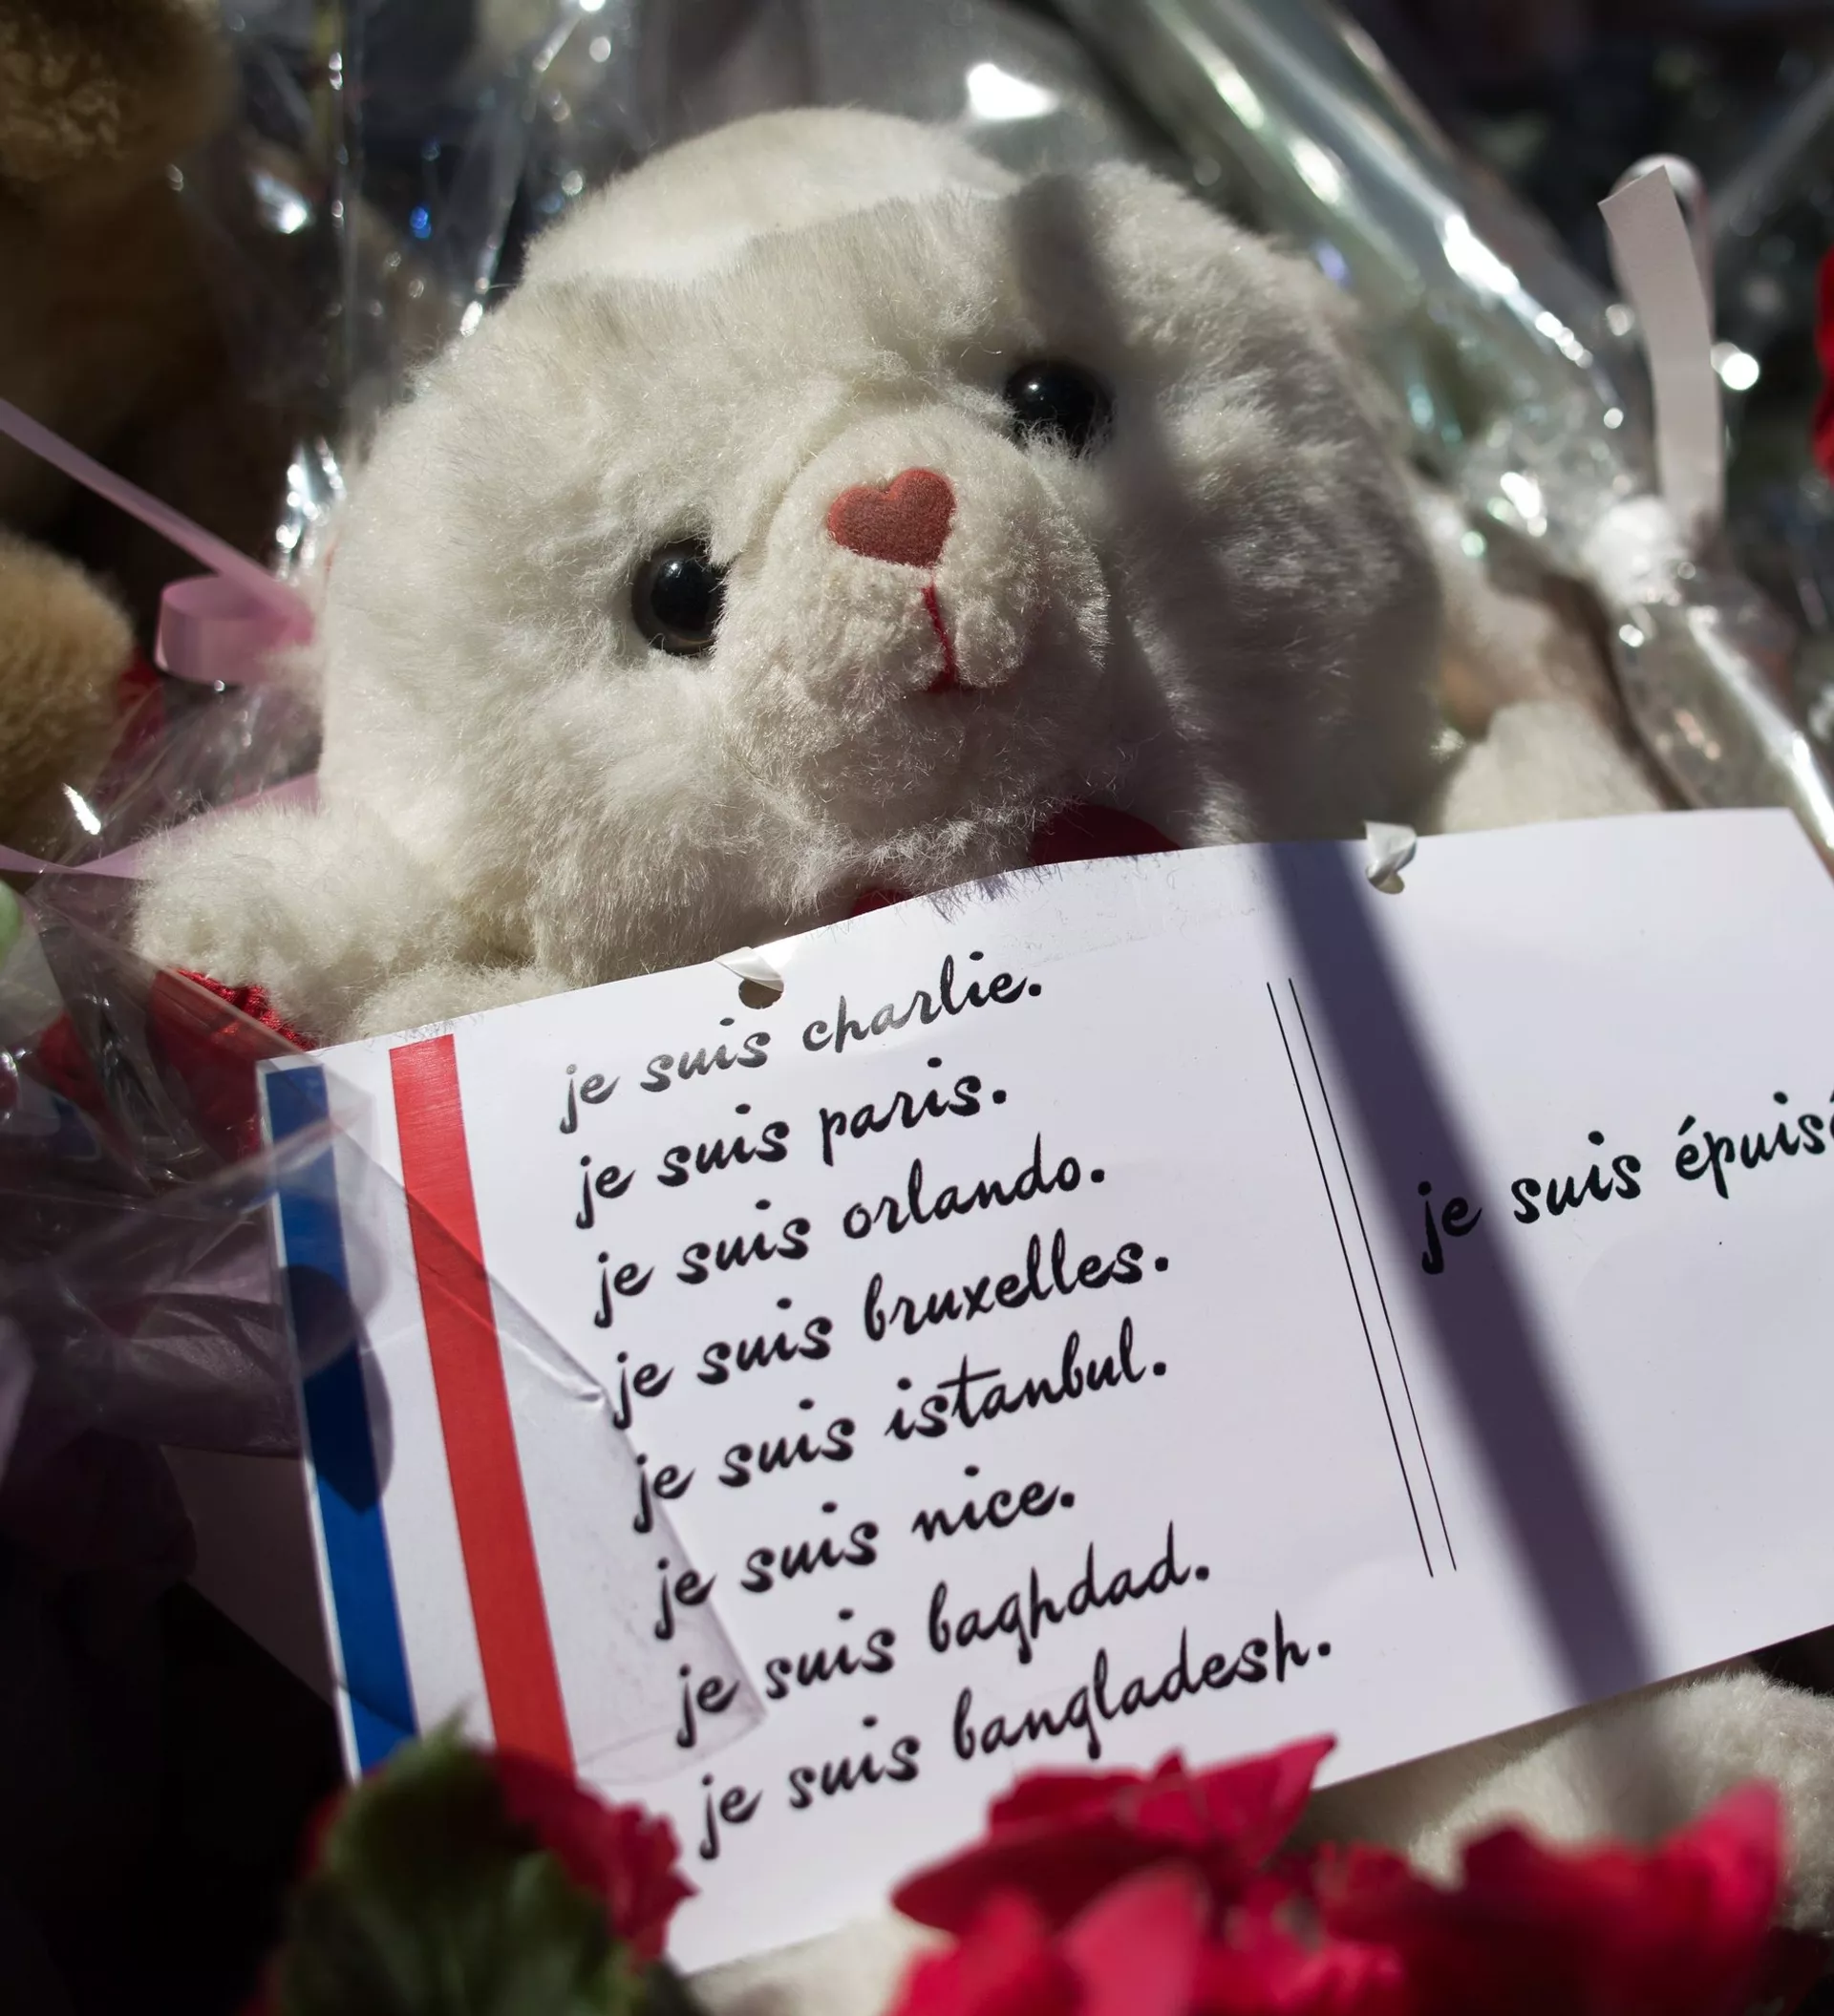 je suis charlie.
je suis paris.
je suis orlando.
je suis bruxelles.
je suis istanbul.
je suis nice.
je suis baghdad.
je suis bangladesh.
je suis